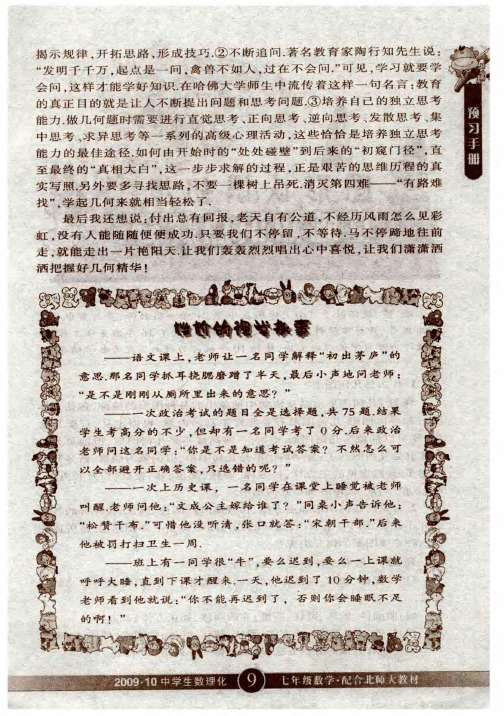 揭示规律,开拓思路,形成技巧.②不断追问.著名教育家陶行知先生说:
“发明千千万,起点是一问,禽兽不如人,过在不会问.”可见,学习就要学
会问,这样才能学好知识.在哈佛大学师生中流传着这样一句名言:教育
的真正目的就是让人不断提出问题和思考问题.③培养自己的独立思考
能力.做几何题时需要进行直觉思考、正向思考、逆向思考、发散思考、集
中思考、求异思考等一系列的高级心理活动,这些恰恰是培养独立思考
能力的最佳途径.如何由开始时的“处处碰壁”到后来的“初窥门径”,直
至最终的“真相大白”,这一步步求解的过程,正是艰苦的思维历程的真
实写照.另外要多寻找思路,不要一棵树上吊死.消灭第四难——“有路难
找”,学起几何来就相当轻松了.
最后我还想说:付出总有回报,老天自有公道,不经历风雨怎么见彩
虹,没有人能随随便便成功.只要我们不停留,不等待.马不停蹄地往前
走,就能走出一片艳阳天.让我们轰轰烈烈唱出心中喜悦,让我们潇潇洒
洒把握好几何精华!
预习手册
——语文课上,老师让一名同学解释“初出茅庐”的
意思.那名同学抓耳挠腮磨蹭了半天,最后小声地问老师:
“是不是刚刚从厕所里出来的意思?”
——一次政治考试的题目全是选择题,共75题.结果
学生考高分的不少,但却有一名同学考了0分.后来政治
老师问这名同学:“你是不是知道考试答案?不然怎么可
以全部避开正确答案,只选错的呢?”
——一次上历史课,一名同学在课堂上睡觉被老师
叫醒.老师问他:“文成公主嫁给谁了?”同桌小声告诉他:
“松赞干布.”可惜他没听清,张口就答:“宋朝干部.”后来
他被罚打扫卫生一周.
——班上有一同学很“牛”,要么迟到,要么一上课就
呼呼大睡,直到下课才醒来.一天,他迟到了10分钟,数学
老师看到他就说:“你不能再迟到了,否则你会睡眠不足
的啊!”
2009·10 中学生数理化 9 七年级数学·配合北师大教材